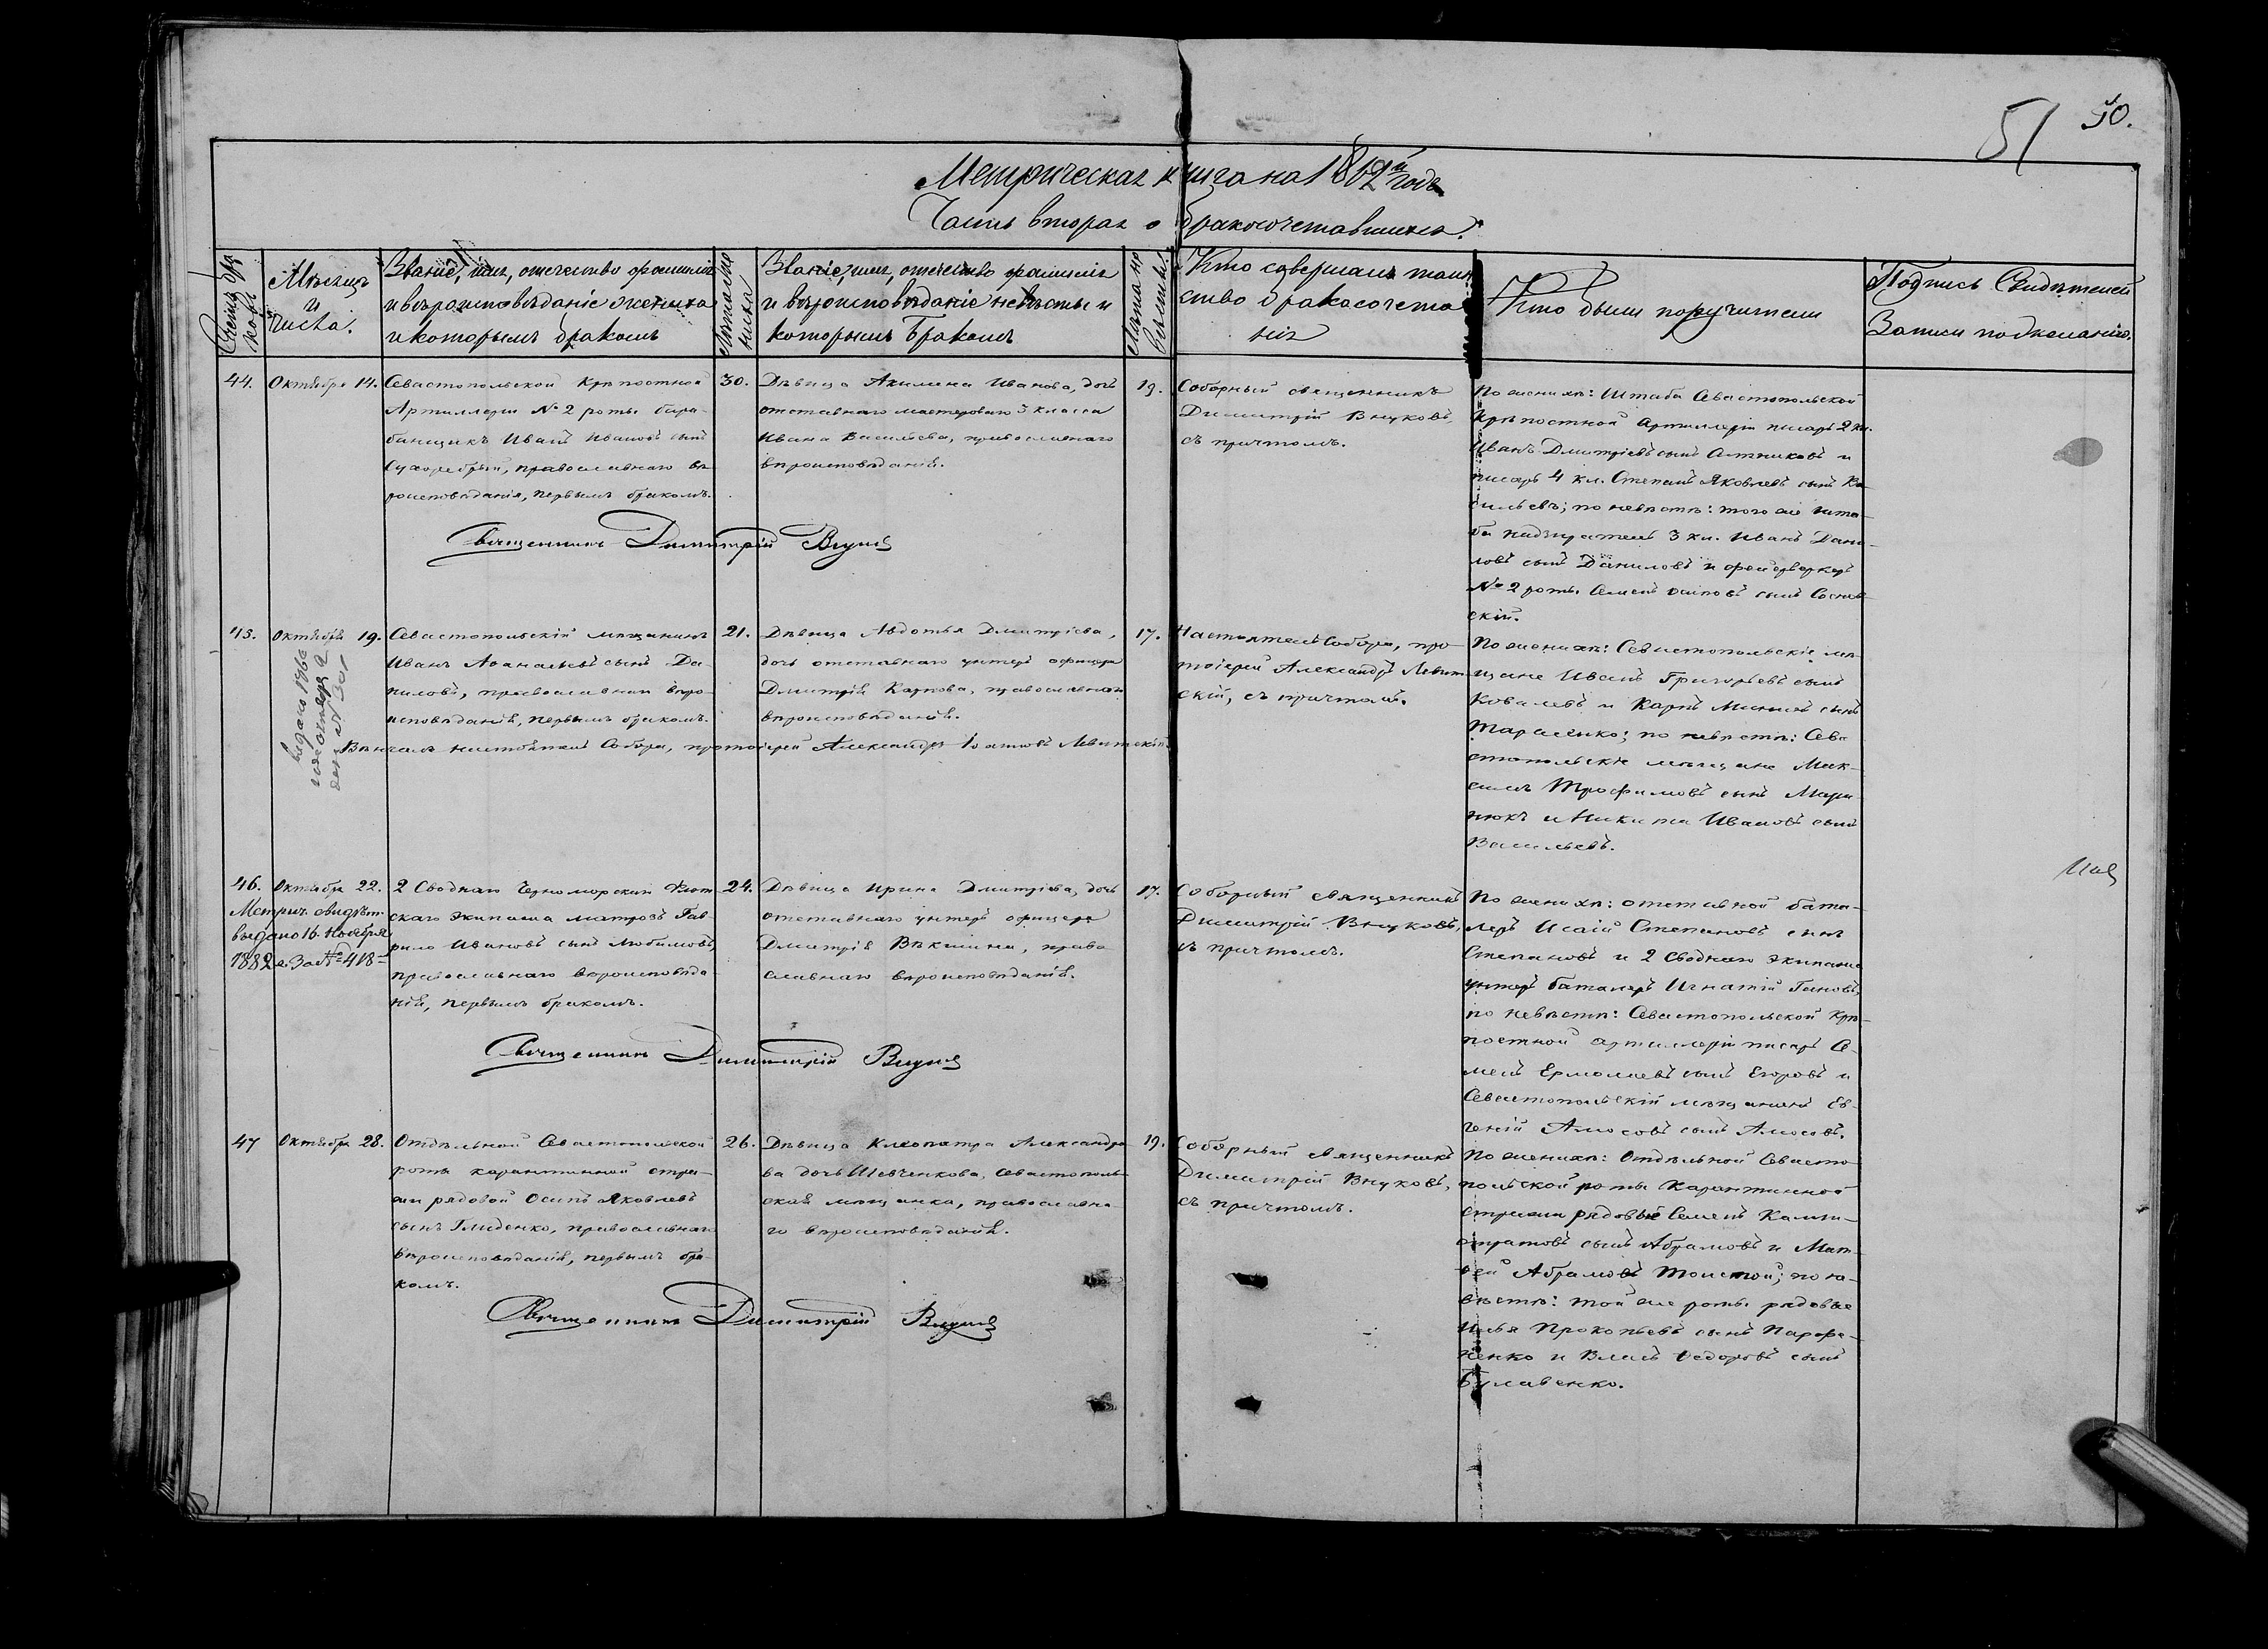 51 50.
Метрическая книга на 1862й годъ
Часть вторая о бракосочетавшихся.
Счетъ бра
ковъ
Мѣсяцъ
и
числа.
Званіе, имя, отечество фамилія
и вѣроисповѣданіе жениха
и которымъ бракомъ
Лѣта же
ниха
Званіе, имя, отечество фамилія
и вѣроисповѣданіе невѣсты и
которымъ Бракомъ
Лѣта не
вѣсты
Кто совершалъ таин
ство бракосочета
нія
Кто были поручители
Подпись Свидѣтелей
Записи по желанію.
44.
Октября 14.
Севастопольской Крѣпостной
Артиллеріи № 2 роты бара-
банщикъ Иванъ Ивановъ сынъ
Сухоребрый, православнаго вѣ-
роисповѣданія, первымъ бракомъ.
30.
Дѣвица Акилина Иванова, дочь
отставнаго мастероваго 3 класса
Ивана Васильева, православнаго
вѣроисповѣданія.
19.
Соборный священникъ
Димитрій Внуковъ,
съ причтомъ.
По женихѣ: Штаба Севастопольской
Крѣпостной Артиллеріи писарь 2 кл.
Иванъ Дмитріевъ сынъ и
писарь 4 кл. Степанъ Яковлевъ сынъ Ва-
сильевъ; по невѣстѣ: того же шта-
ба надзиратель 3 кл. Иванъ Дани-
ловъ сынъ Даниловъ и фейерверкеръ
№ 2 роты Семенъ Осиповъ сынъ
скій.
Священникъ Димитрій Внуковъ
45.
Октября 19.
Севастопольскій мѣщанинъ
Иванъ Аѳанасьевъ сынъ Да-
ниловъ, православнаго вѣро-
исповѣданія, первымъ бракомъ.
21.
Дѣвица Авдотья Дмитріева,
дочь отставнаго унтеръ офицера
Дмитрія Карпова, православнаго
вѣроисповѣданія.
17.
Настоятель Собора, про-
тоіерей Александръ Левит-
скій, съ причтомъ.
По женихѣ: Севастопольскіе мѣ-
щане Иванъ Григорьевъ сынъ
Ковалевъ и Карпъ сынъ
Тарасенко; по невѣстѣ: Сева-
стопольскіе мѣщане Мак-
симъ Трофимовъ сынъ Мари-
нюкъ и Никита Ивановъ сынъ
Васильевъ.
Вѣнчалъ настоятель Собора, протоіерей Александръ Левитскій.
выдано
46.
Октября 22.
Метрич. свидѣт.
выдано 16. Ноября
1882 г. За № 418
2 Своднаго Черноморскаго Флот-
скаго экипажа матросъ Гав-
рило Ивановъ сынъ Любимовъ,
православнаго вѣроисповѣда-
нія, первымъ бракомъ.
24.
Дѣвица Ирина Дмитріева, дочь
отставнаго унтеръ офицера
Дмитрія Вѣкшина, право
славнаго вѣроисповѣданія.
17.
Соборный священникъ
Димитрій Внуковъ,
съ причтомъ.
По женихѣ: отставной бата-
леръ Исаій Степановъ сынъ
Степановъ и 2 своднаго экипажа
унтеръ баталеръ Игнатій
по невѣстѣ: Севастопольской Крѣ-
постной артиллеріи писарь Се-
менъ Ермолаевъ сынъ Егоровъ и
Севастопольскій мѣщанинъ Ев-
геній Амосовъ сынъ Амосовъ.
Священникъ Димитрій Внуковъ
47
Октября 28.
Отдѣльной Севастопольской
роты карантинной стра-
жи рядовой Осипъ Яковлевъ
сынъ Гниденко, православнаго
вѣроисповѣданія, первымъ бра-
комъ.
26.
Дѣвица Клеопатра Александро-
ва дочь Шевченкова, Севастополь-
ская мѣщанка, православна-
го вѣроисповѣданія.
19.
Соборный священникъ
Димитрій Внуковъ,
съ причтомъ.
По женихѣ: Отдѣльной Севасто-
польской роты Карантинной
стражи рядовые Семенъ Кали-
стратовъ сынъ Абрамовъ и Мат-
вей Абрамовъ Толстой; по не-
вѣстѣ: той же роты рядовые
Илья Прокопьевъ сынъ Парфе-
ненко и Власъ Ѳедоровъ сынъ
Булавенко.
Священникъ Димитрій Внуковъ